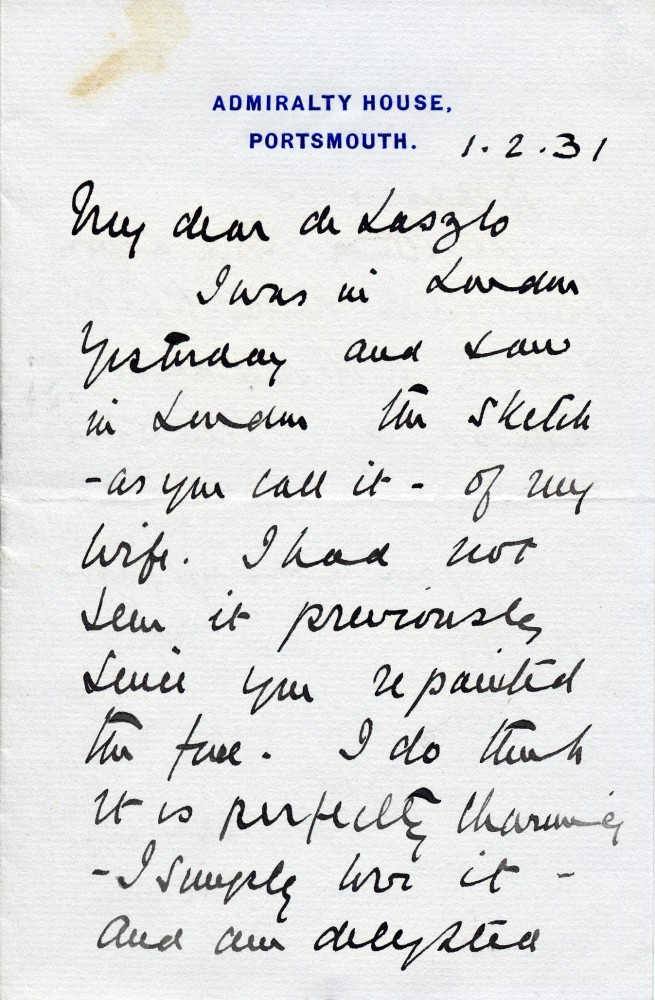 ADMIRALTY HOUSE,
PORTSMOUTH.
1.2.31
My dear de Laszlo
I was in London
Yesterday and saw
in London the sketch
- as you call it - of my
wife. I had not
seen it previously
since you repainted
the face. I do think
it is perfectly charming
- I simply love it -
and am delighted